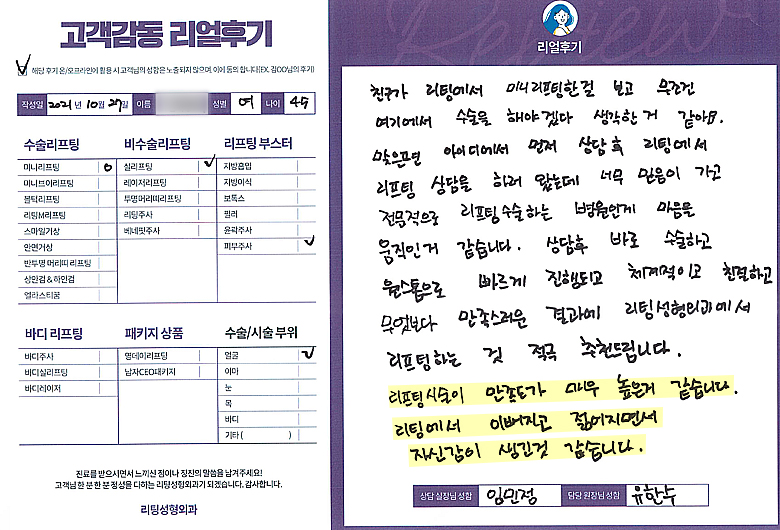 고객감동 리얼후기
해당 후기 온/오프라인에 활용 시 고객님의 성함은 노출되지 않으며, 이에 동의 합니다(EX. 김OO님의 후기)
작성일 2021년 10월 27일 이름 성별 여 나이 45
수술리프팅
미니리프팅 o
미니브이리프팅
블턱리프팅
리팅M리프팅
스마일거상
안면거상
반투명 머리띠 리프팅
상안검 & 하안검
엘라스티꿈
비수술리프팅
실리프팅 ✓
레이저리프팅
투명머리띠리프팅
리팅주사
베네핏주사
리프팅 부스터
지방흡입
지방이식
보톡스
필러
윤곽주사
피부주사 ✓
바디 리프팅
바디주사
바디실리프팅
바디레이저
패키지 상품
영데이리프팅
남자CEO패키지
수술/시술 부위
얼굴 ✓
이마
눈
목
바디
기타 ( )
진료를 받으시면서 느끼신 점이나 칭찬의 말씀을 남겨주세요!
고객님 한 분 한 분 정성을 다하는 리팅성형외과가 되겠습니다. 감사합니다.
리팅성형외과
Review
리얼후기
친구가 리팅에서 미니리프팅한걸 보고 무조건
여기에서 수술을 해야겠다 생각한거 같아요.
맞은편 아이디에서 먼저 상담후 리팅에서
리프팅 상담을 하러 왔는데 너무 믿음이 가고
전문적으로 리프팅수술하는 병원인게 마음을
움직인거 같습니다. 상담후 바로 수술하고
원스톱으로 빠르게 진행되고 체계적이고 친절하고
무엇보다 만족스러운 결과에 리팅성형외과에서
리프팅하는 것 적극 추천드립니다.
리프팅시술이 만족도가 매우 높은거 같습니다.
리팅에서 이뻐지고 젊어지면서
자신감이 생긴것 같습니다.
상담 실장님 성함 임민정 담당 원장님 성함 유한수